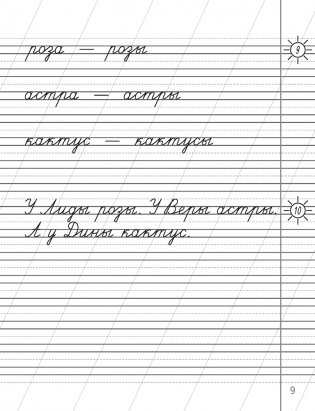 роза — розы
9
астра — астры
кактус — кактусы
У Лиды розы. У Веры астры.
10
А у Дины кактус.
9